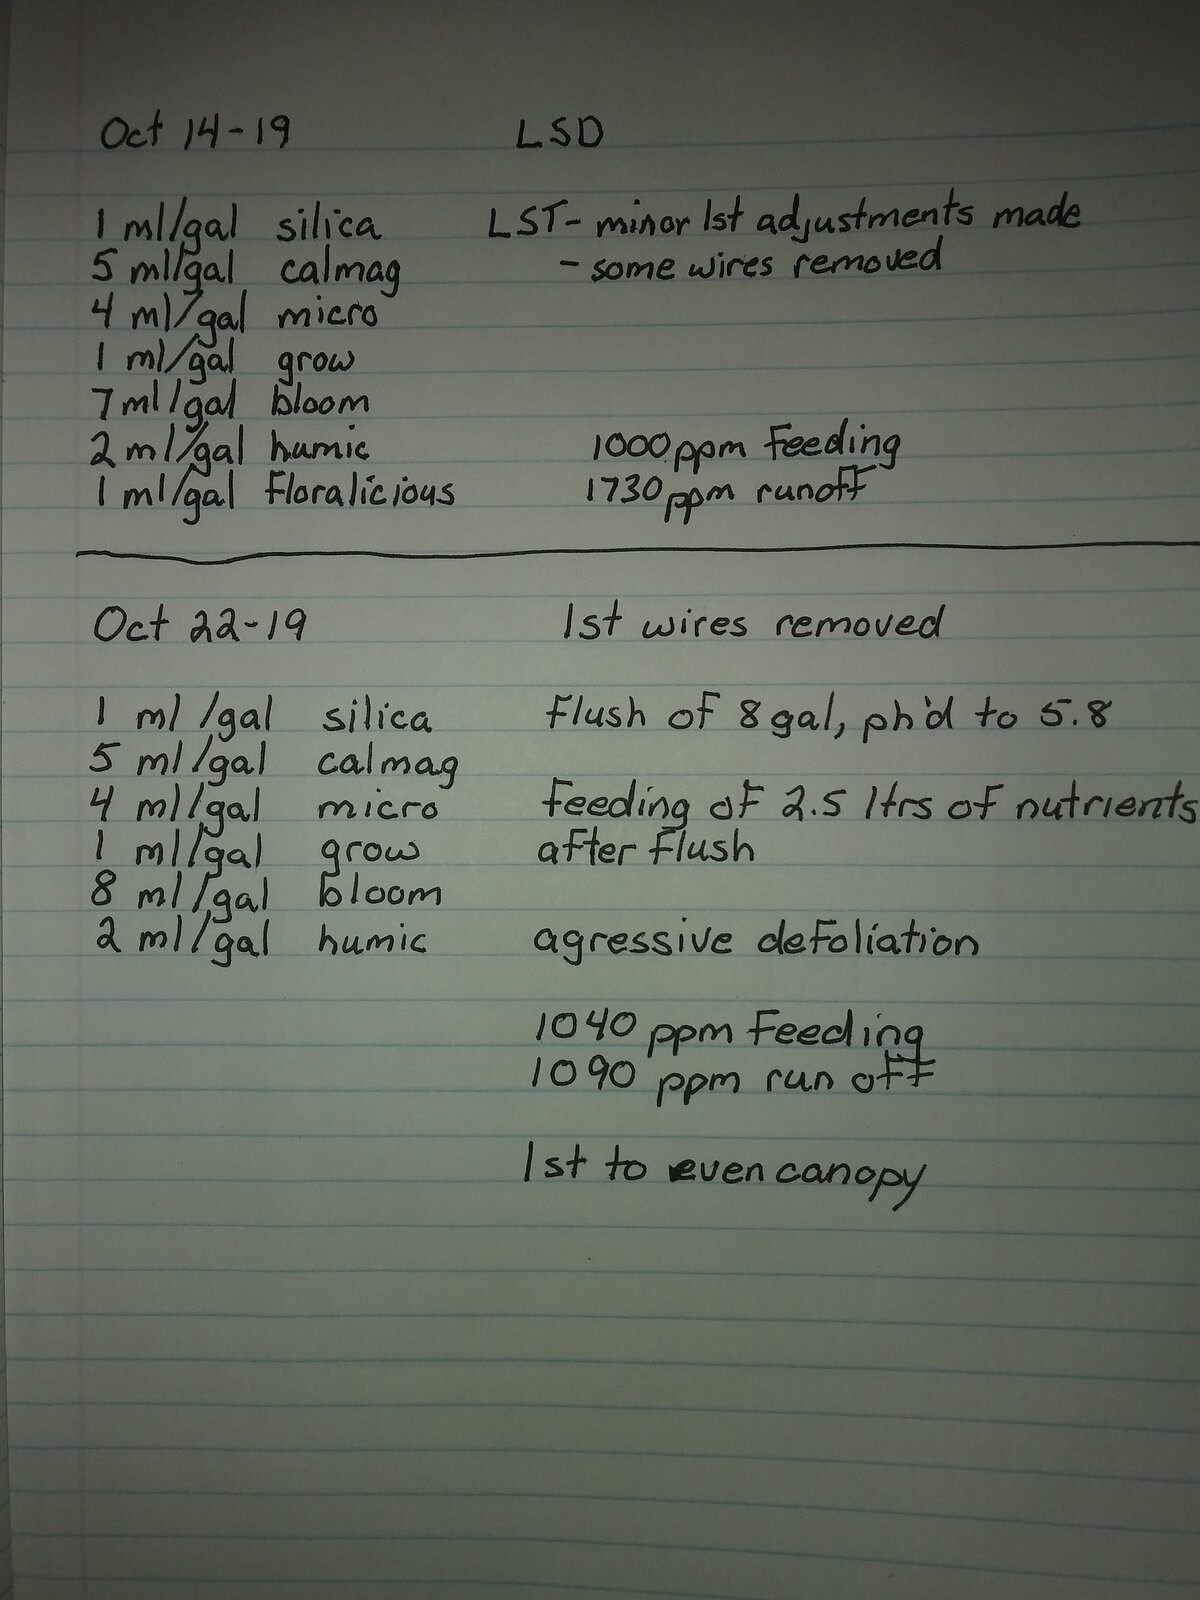 Oct 14-19 LSD
1 ml/gal silica LST- minor lst adjustments made
5 ml/gal calmag - some wires removed
4 ml/gal micro
1 ml/gal grow
7 ml/gal bloom
2 ml/gal humic 1000 ppm feeding
1 ml/gal floralicious 1730 ppm runoff
Oct 22-19 lst wires removed
1 ml /gal silica flush of 8 gal, ph'd to 5.8
5 ml /gal calmag
4 ml /gal micro feeding of 2.5 ltrs of nutrients
1 ml /gal grow after flush
8 ml /gal bloom
2 ml /gal humic agressive defoliation
1040 ppm feeding
1090 ppm run off
lst to even canopy